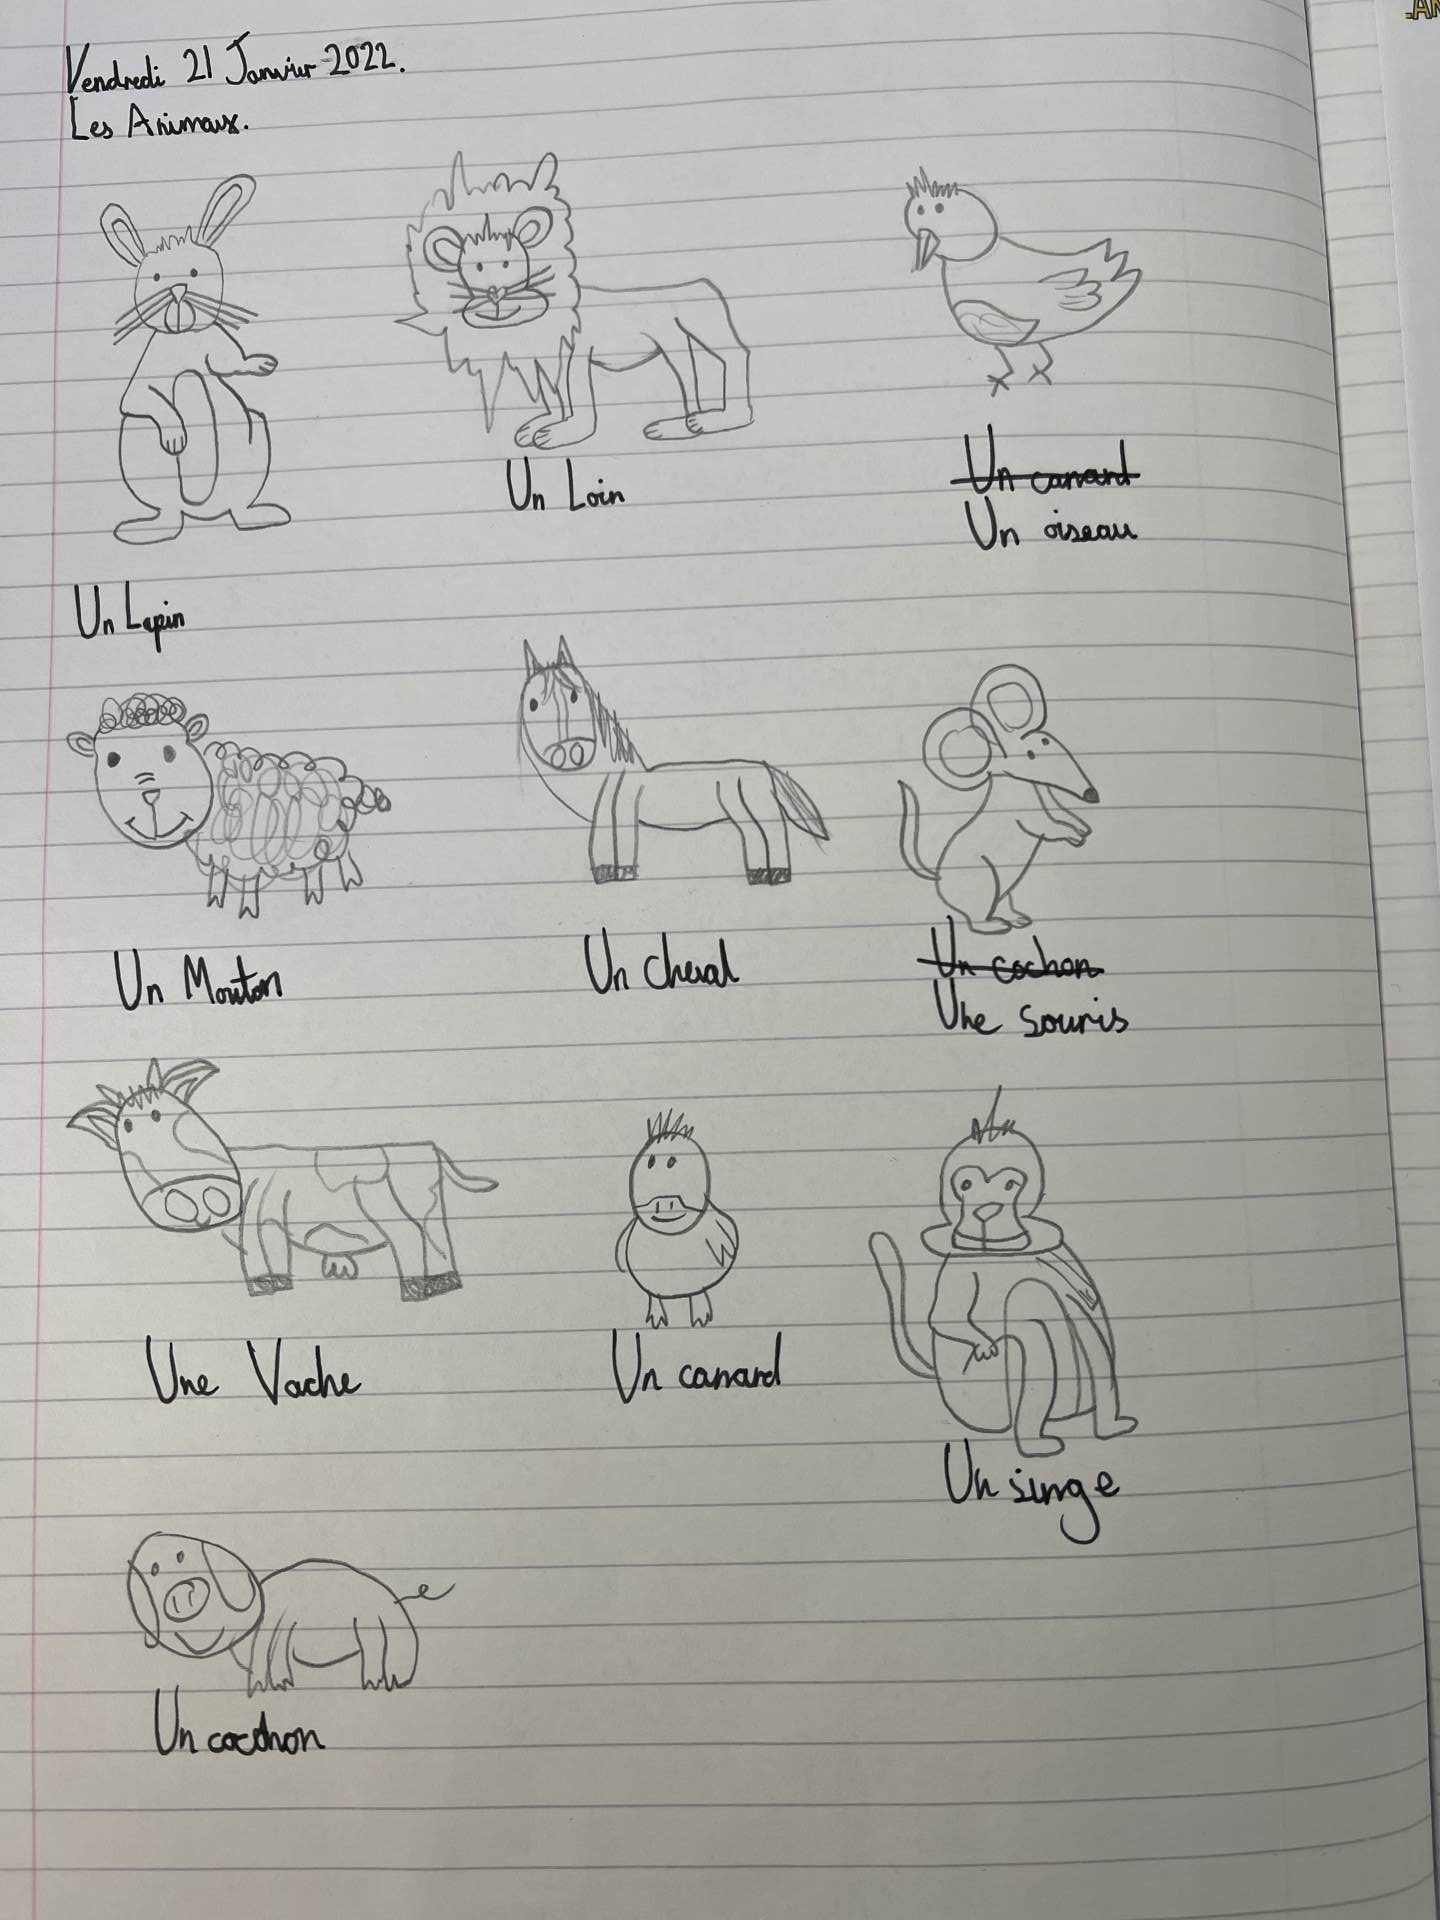 Vendredi 21 Janvier 2022.
Les Animaux.
Un Loin
Un canard
Un oiseau
Un Lapin
Un Mouton
Un cheval
Un cochon
Une souris
Une Vache
Un canard
Un singe
Un cochon